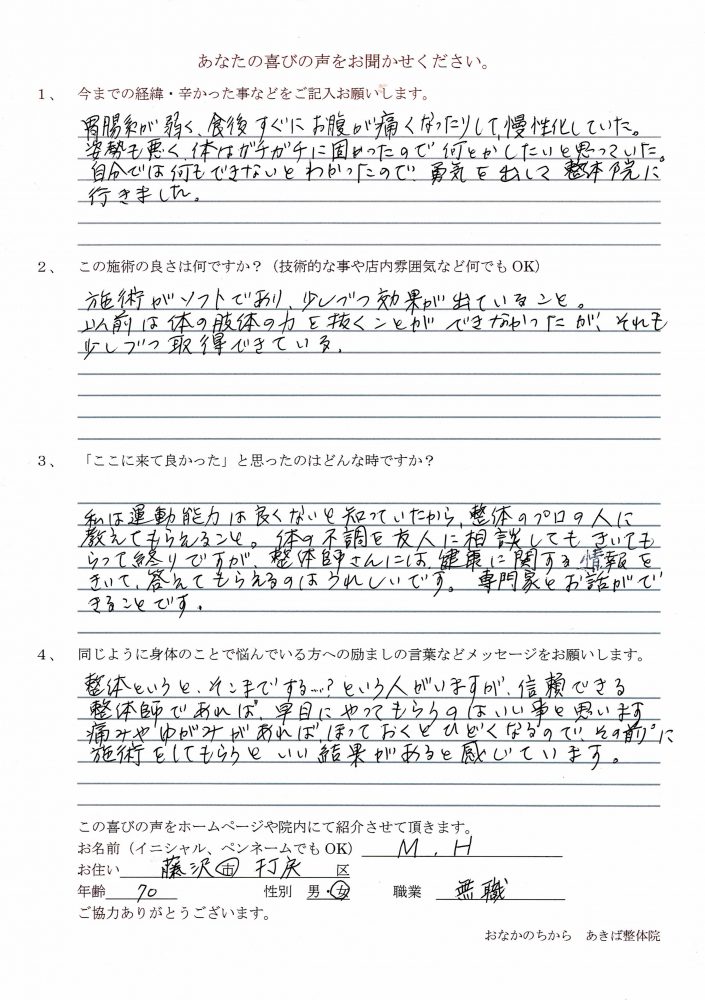 あなたの喜びの声をお聞かせください。
1、 今までの経緯・辛かった事などをご記入お願いします。
胃腸系が弱く、食後すぐにお腹が痛くなったりして、慢性化していた。
姿勢も悪く、体はガチガチに固かったので何とかしたいと思っていた。
自分では何もできないとわかったので、勇気を出して整体院に
行きました。
2、 この施術の良さは何ですか？（技術的な事や店内雰囲気など何でも OK）
施術がソフトであり、少しづつ効果が出ていること。
以前は体の肢体の力を抜くことができなかったが、それも
少しづつ取得できている。
3、 「ここに来て良かった」と思ったのはどんな時ですか？
私は運動能力は良くないと知っていたから、整体のプロの人に
教えてもらえること。体の不調を友人に相談してもきいても
らって終りですが、整体師さんには、健康に関する情報を
きいて、答えてもらえるのはうれしいです。専門家とお話がで
きることです。
4、 同じように身体のことで悩んでいる方への励ましの言葉などメッセージをお願いします。
整体というと、そこまでする…？という人がいますが、信頼できる
整体師であれば、早目にやってもらうのはいい事と思います
痛みやゆがみがあれば、ほっておくとひどくなるので、その前に
施術をしてもらうといい結果があると感じています。
この喜びの声をホームページや院内にて紹介させて頂きます。
お名前（イニシャル、ペンネームでも OK） M.H
お住い 藤沢市 打戻 区
年齢 70 性別 男・女 職業 無職
ご協力ありがとうございます。
おなかのちから あきば整体院